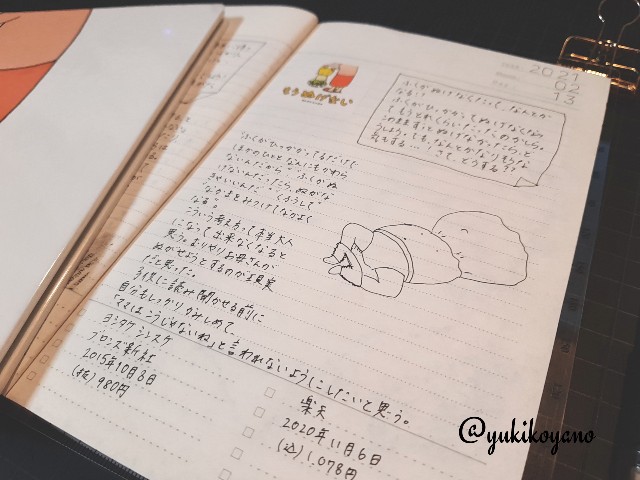 2021
02
13
もう ぬげない
ふくがぬげなくたって、なんとか
なる!?
ふくがひっかかってぬげなくなって
もうどれくらいたったのかしら。
このままずっとぬげなかったら、と
うしよう。でも、なんとかなりそうな
気もする…。さて、どうする??
ふくがひっかかってるだけで
ほかのひととなんにもかわら
ないんだから
"ふくがぬ
げないんだったら、ぬがな
きゃいいんだ"
"くふうして"
"なかまをみつけてなかよく
なる"。
こういう考え方って本当大人
になって出来なくなると
思う。むりやりお母さんが
ぬがせようとするのが現実
だと思った。
子供に読み聞かせる前に
自分もしっかりかみしめて、
「ママはこうじゃないね」と言われないようにしたいと思う。
ヨシタケシンスケ
ブロンズ新社
2015年10月8日
(抜) 980円
楽天
2020年11月6日
(込) 1,078円
@yukikoyano